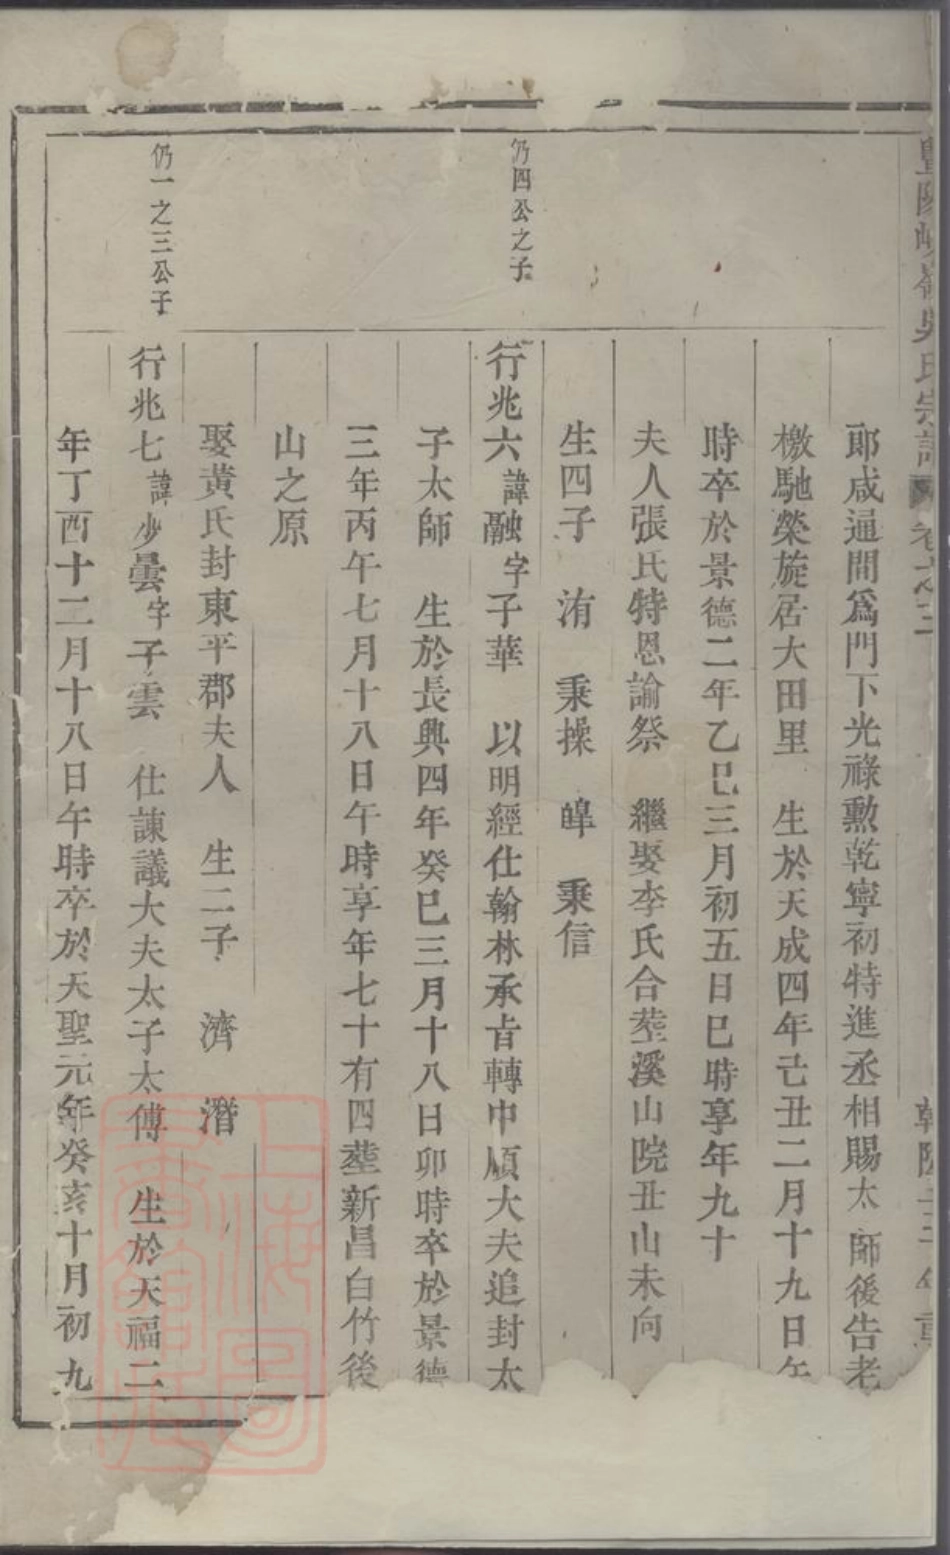 吳氏宗譜 卷之二
郎咸通間爲門下光祿勲乾寧初特進丞相賜太師後告老
檄馳榮旋居大田里 生於天成四年己丑二月十九日午
時卒於景德二年乙巳三月初五日巳時享年九十
夫人張氏特恩諭祭 繼娶李氏合塟溪山院丑山未向
生四子 洧 秉操 皡 秉信
仍四公之子
行兆六諱融字子華 以明經仕翰林承旨轉中順大夫追封太
子太師 生於長興四年癸巳三月十八日卯時卒於景德
三年丙午七月十八日午時享年七十有四塟新昌白竹後
山之原
娶黃氏封東平郡夫人 生二子 濟 潛
仍一之三公子
行兆七諱少曇字子雲 仕諫議大夫太子太傅 生於天福二
年丁酉十二月十八日午時卒於天聖元年癸亥十月初九
上海圖書館藏